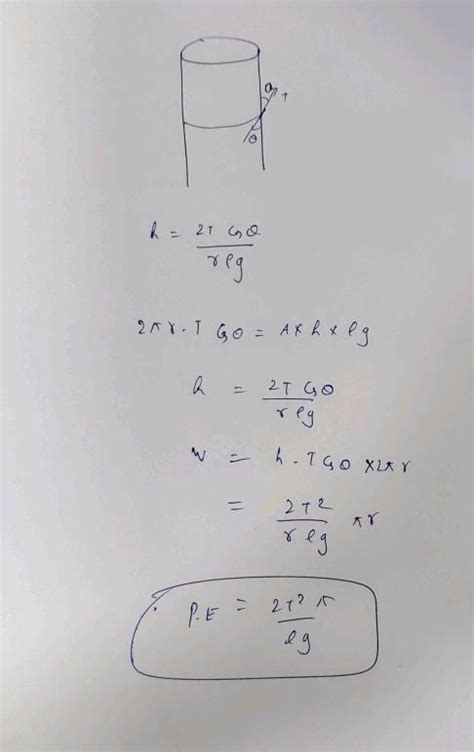 θ T
θ
h = 2T cosθ / rρg
2πr . T cosθ = A × h × ρg
h = 2T cosθ / rρg
W = h . T cosθ × 2πr
= 2T² / rρg πr
P.E = 2T² π / ρg